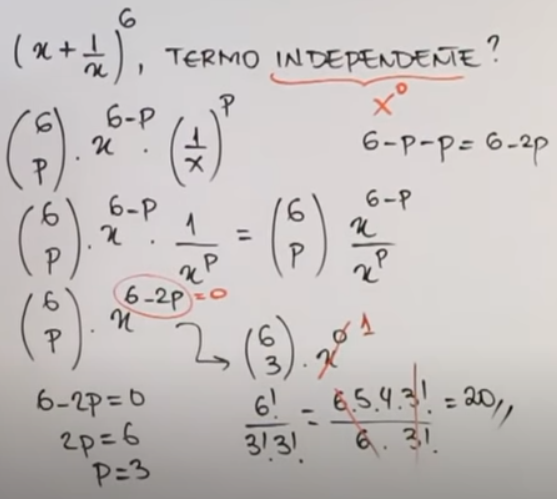 (x + 1/x)^6, TERMO INDEPENDENTE?
x^0
(6 P) . x^(6-P) . (1/x)^P
6-P-P = 6-2P
(6 P) . x^(6-P) . 1/x^P = (6 P) x^(6-P)/x^P
(6 P) . x^(6-2P) =0
(6 3) . x^0 1
6-2P=0
2P=6
P=3
6!/3!3! = 6.5.4.3!/6.3! = 20,,